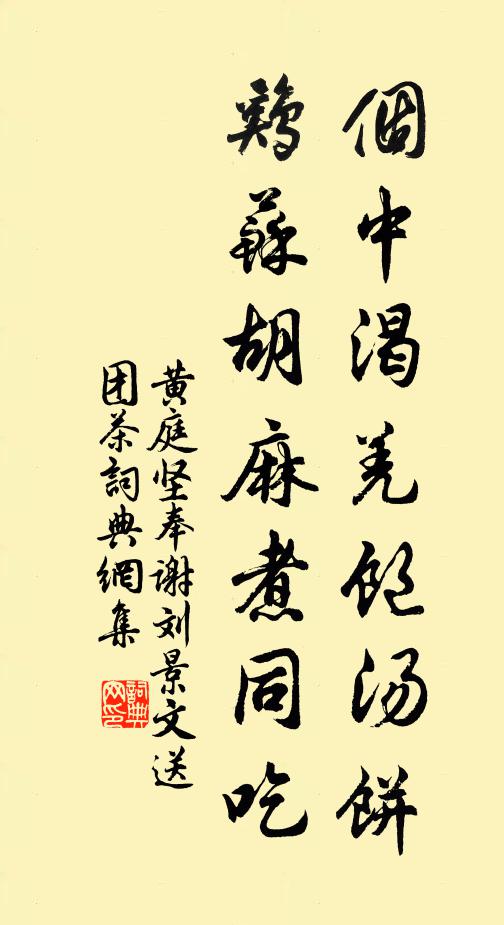 個中渴羌飽汤餅
鷄蘇胡麻煮同吃
黄庭坚奉謝刘景文送
团茶詞典網集
詞典网印